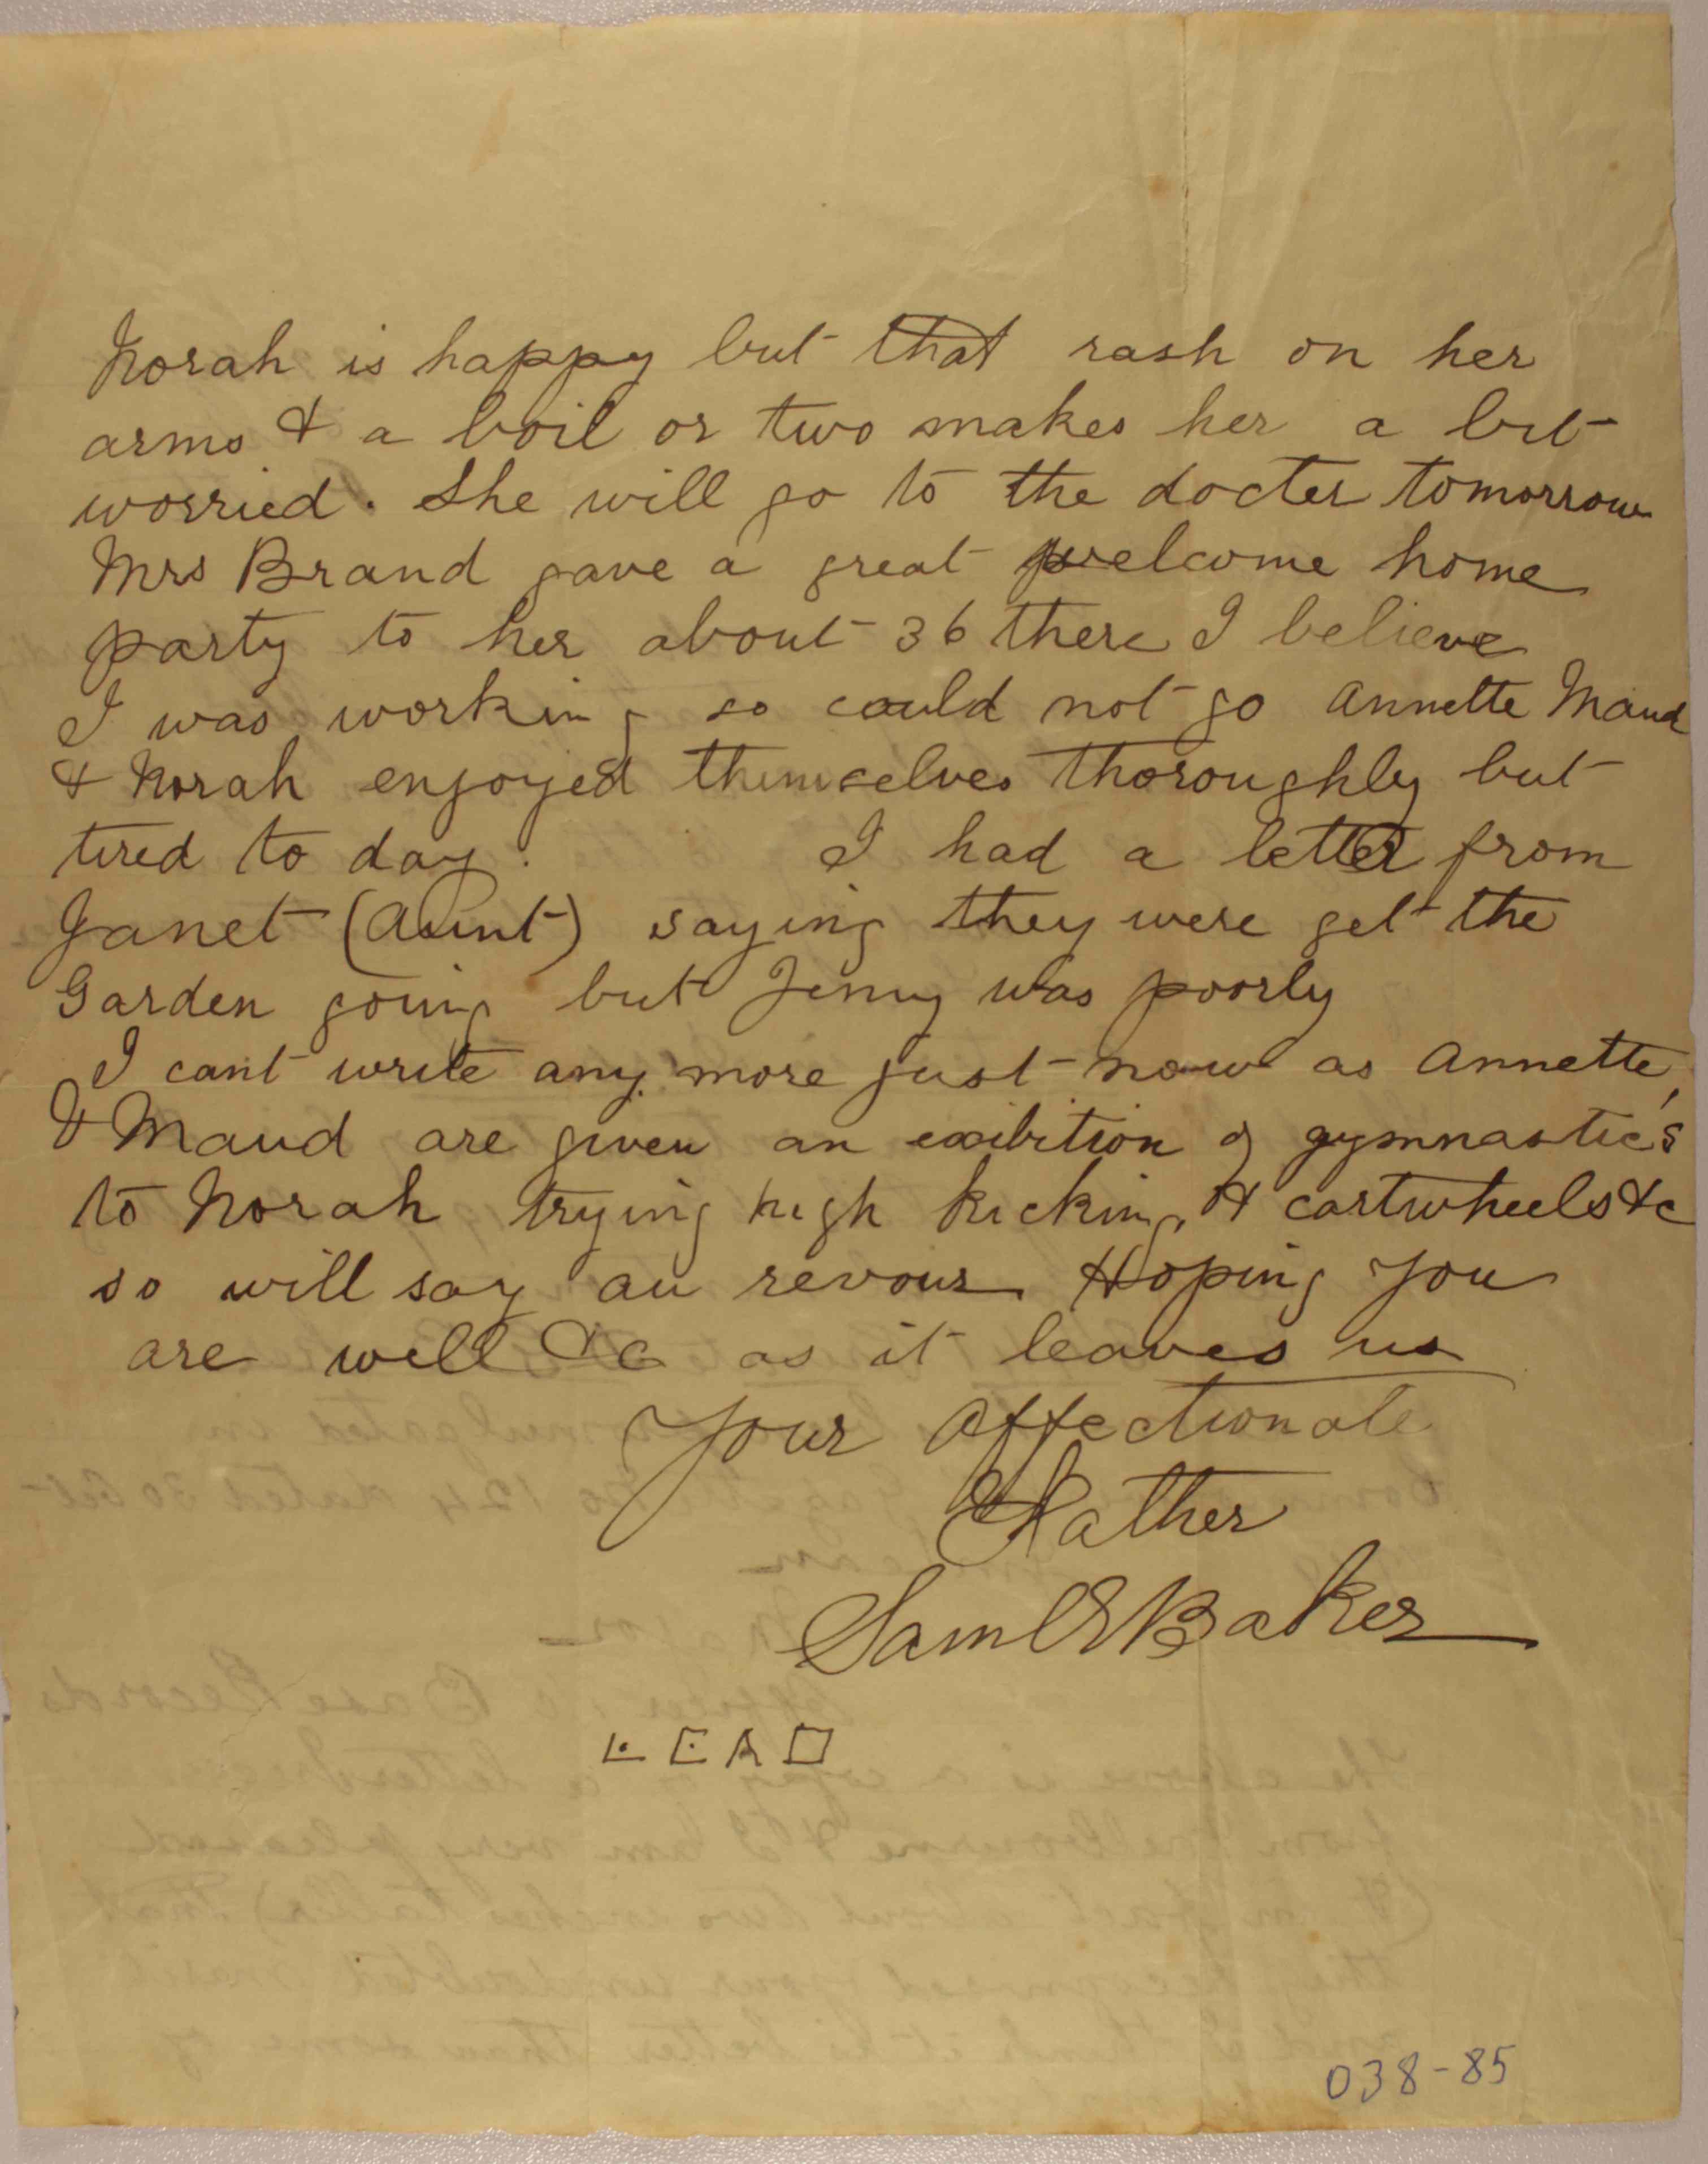 Norah is happy but that rash on her
arms & a boil or two makes her a bit
worried. She will go to the docter tomorrow
Mrs Brand gave a great welcome home
party to her about 36 there I believe
I was working so could not go Annette Maud
& Norah enjoyed themselves thoroughly but
tired to day. I had a letter from
Janet (Aunt) saying they were get the
Garden going but Jenny was poorly
I cant write any more just now as Annette,
& Maud are given an exibition of gymnastic's
to Norah trying high kicking, & cartwheels &c
so will say au revour. Hoping you
are well &c as it leaves us
Your Affectionate
Father
Saml E Baker
038-85